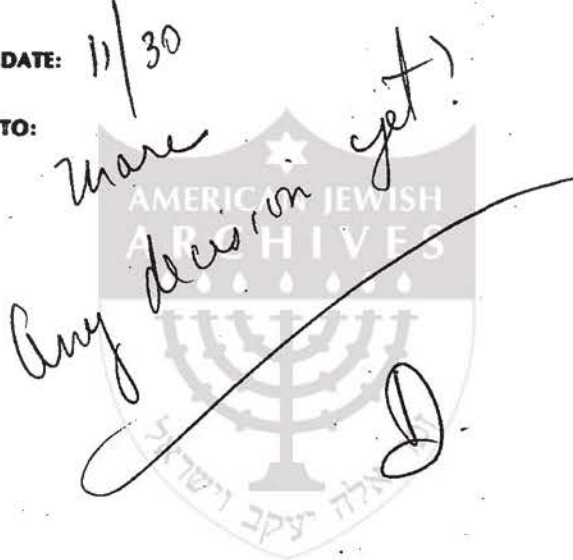 DATE: 11/30
TO:
Marc
Any decision yet?
D.
AMERICAN JEWISH
ARCHIVES
אלה יעקב וישראל